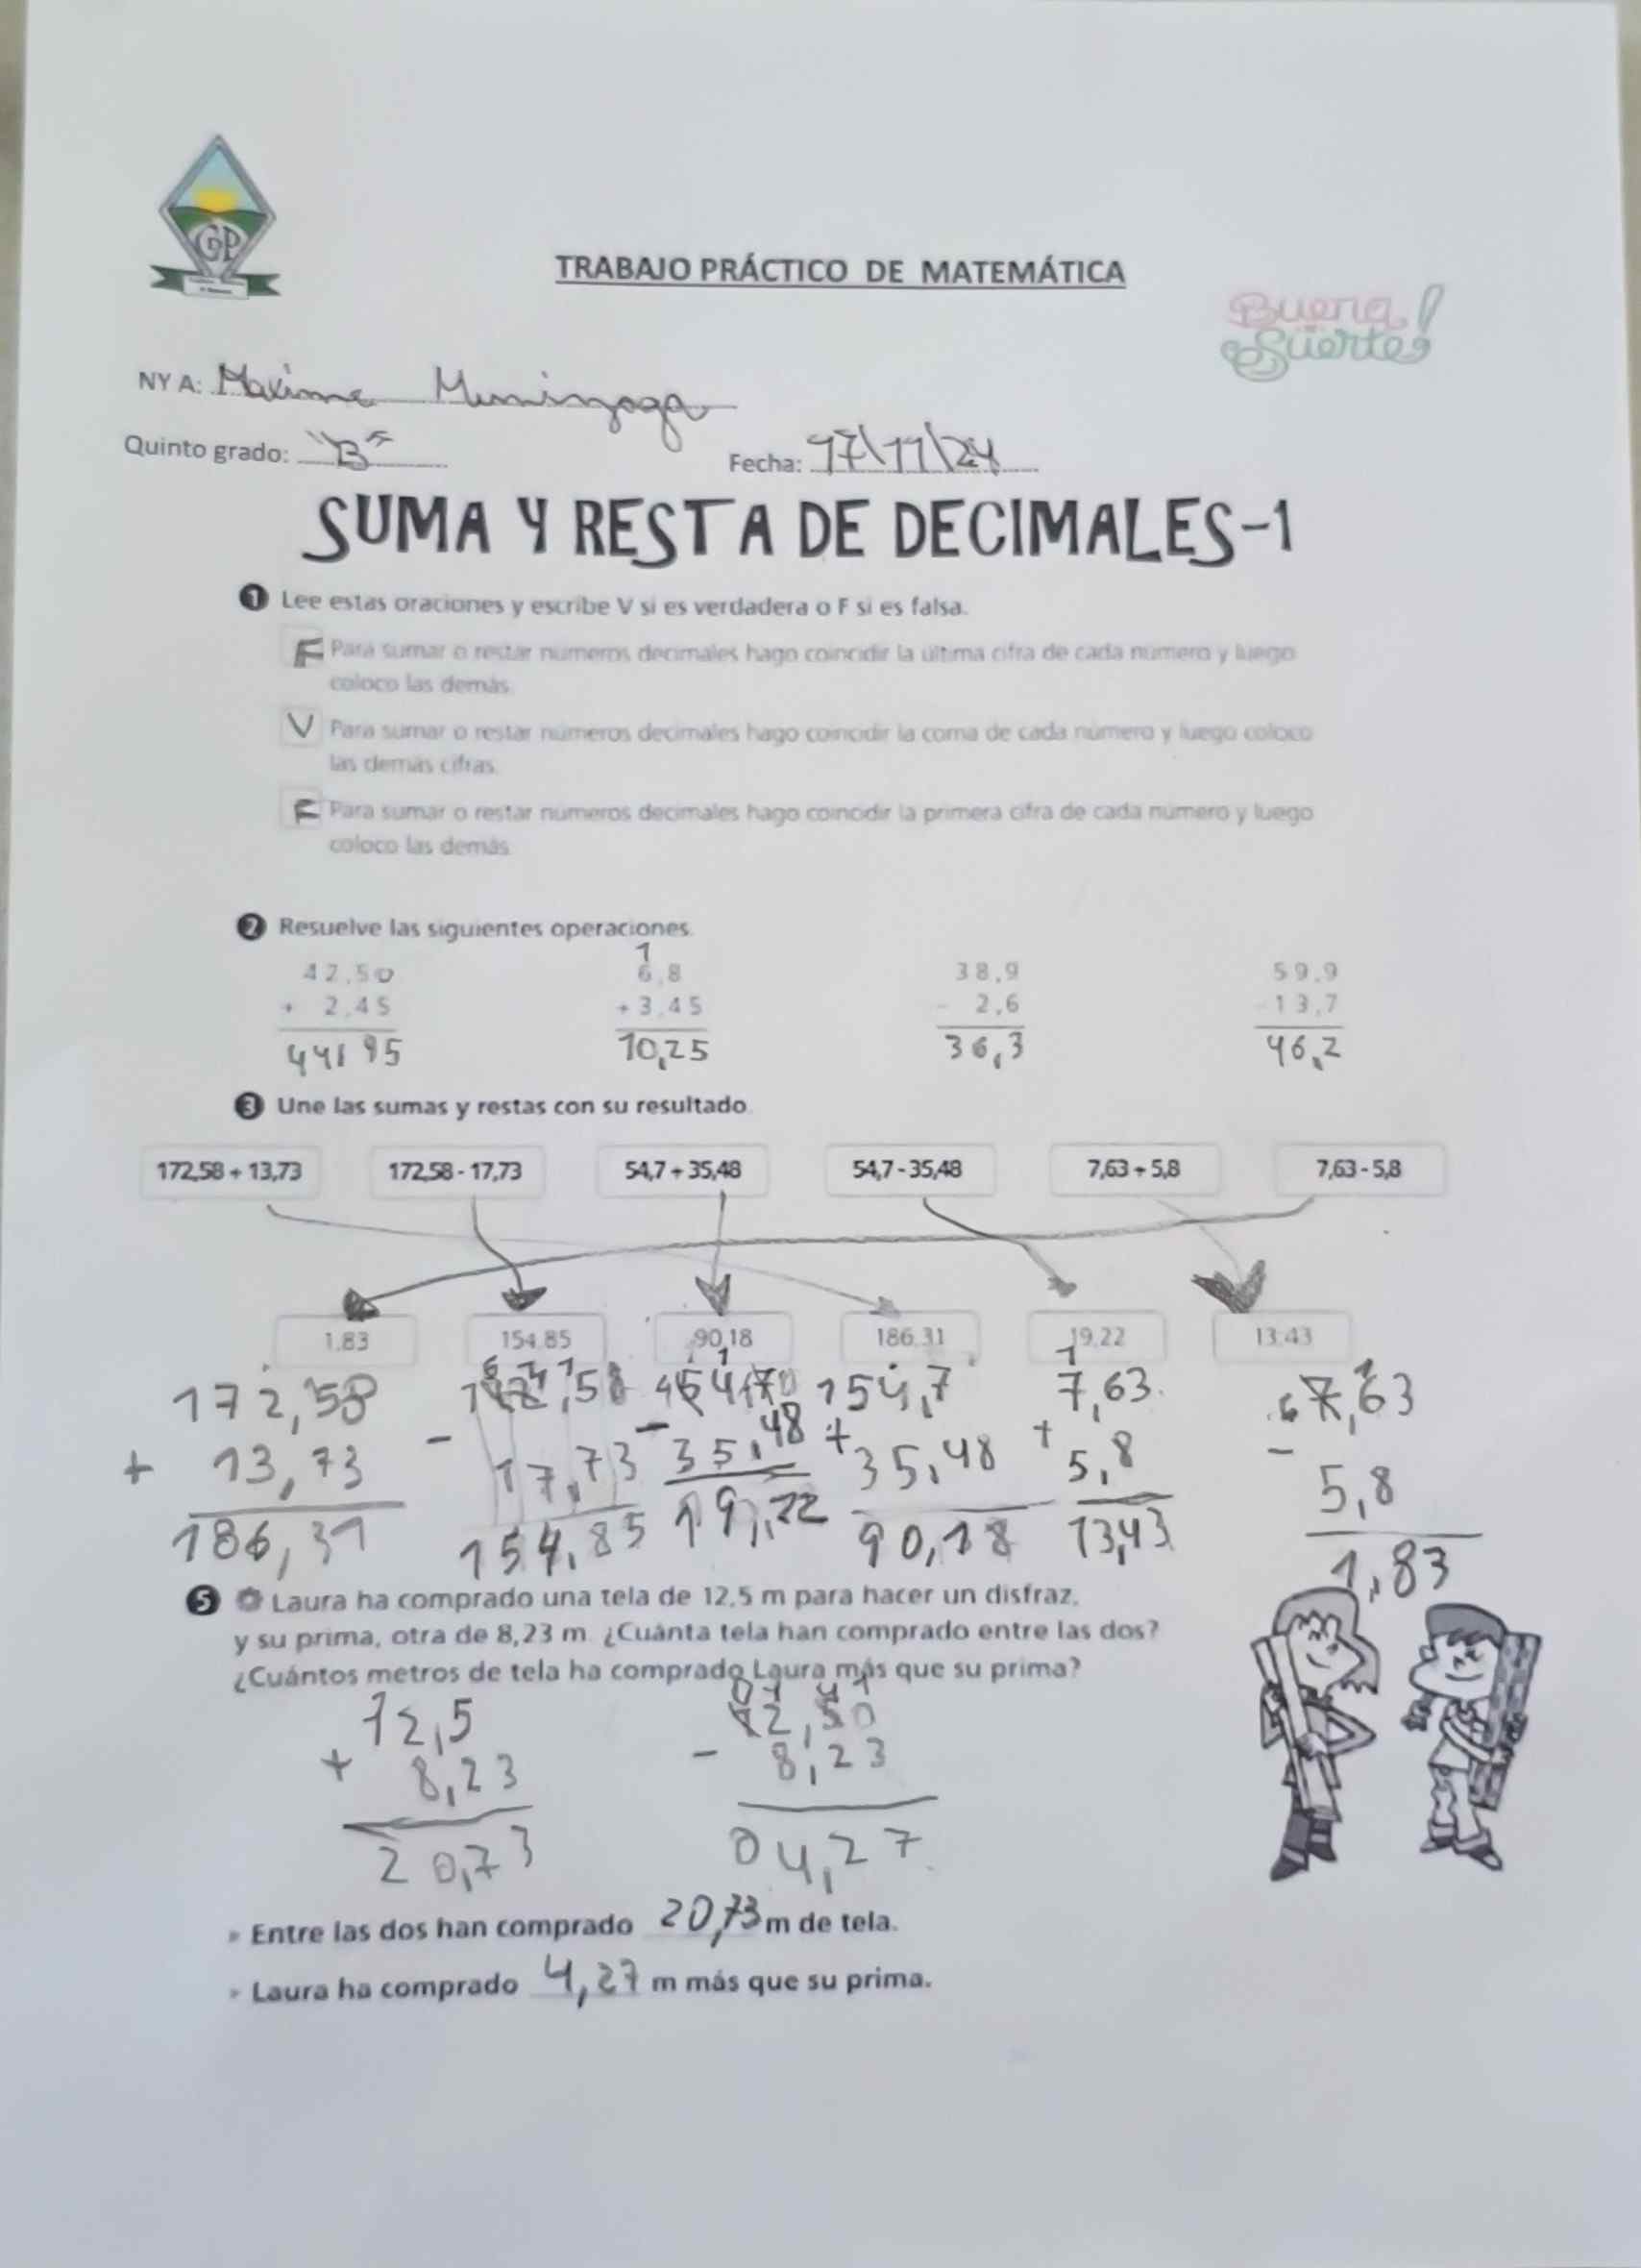 GDP
TRABAJO PRÁCTICO DE MATEMÁTICA
Buena
Suerte!
NY A:
Quinto grado: "B"
Fecha: 17/11/24
SUMA Y RESTA DE DECIMALES-1
1 Lee estas oraciones y escribe V si es verdadera o F si es falsa.
F Para sumar o restar números decimales hago coincidir la última cifra de cada número y luego
coloco las demás.
V Para sumar o restar números decimales hago coincidir la coma de cada número y luego coloco
las demás cifras.
F Para sumar o restar números decimales hago coincidir la primera cifra de cada número y luego
coloco las demás.
2 Resuelve las siguientes operaciones.
1
42,50 6,8 38,9 59,9
+ 2,45 + 3,45 - 2,6 - 13,7
44,95 10,25 36,3 46,2
3 Une las sumas y restas con su resultado.
172,58 + 13,73 172,58 - 17,73 54,7 + 35,48 54,7 - 35,48 7,63 + 5,8 7,63 - 5,8
1,83 154,85 90,18 186,31 19,22 13,43
172,58 54,7 7,63 7,63
+ 13,73 - 17,73 - 35,48 + 35,48 + 5,8 - 5,8
186,31 154,85 19,22 90,18 13,43 1,83
5 Laura ha comprado una tela de 12,5 m para hacer un disfraz,
y su prima, otra de 8,23 m. ¿Cuánta tela han comprado entre las dos?
¿Cuántos metros de tela ha comprado Laura más que su prima?
12,5 12,50
+ 8,23 - 8,23
20,73 04,27
Entre las dos han comprado 20,73 m de tela.
Laura ha comprado 4,27 m más que su prima.